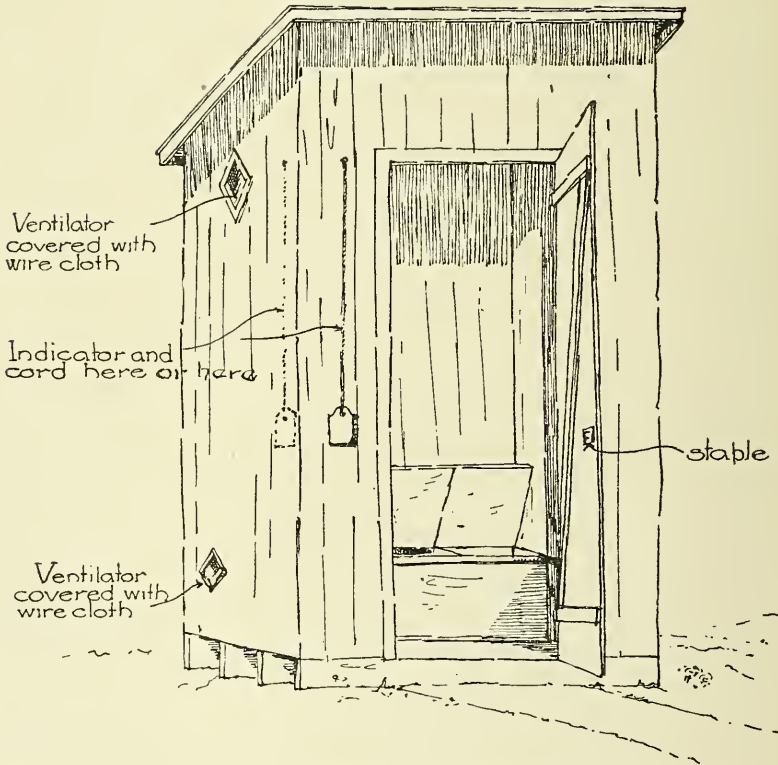 Ventilator
covered with
wire cloth
Indicator and
cord here or here
stable
Ventilator
covered with
wire cloth